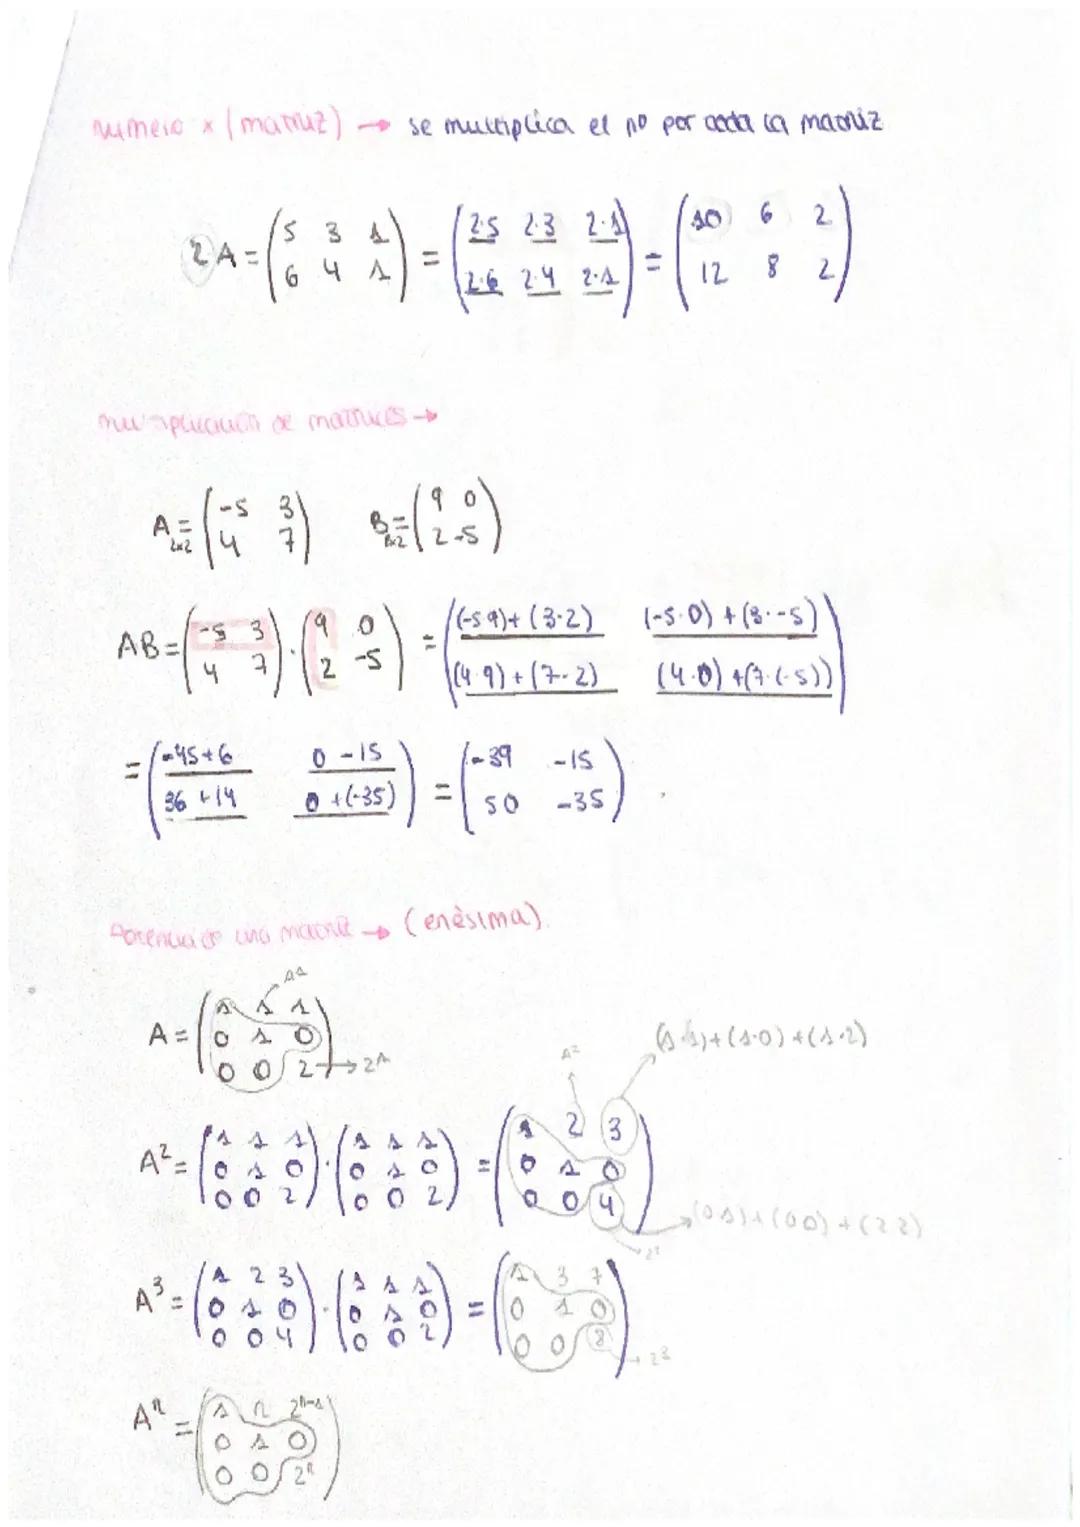 numero x (matriz) → se multiplica el nº por cada la matriz
2A = (5 3 1 / 6 4 1) = (2·5 2·3 2·1 / 2·6 2·4 2·1) = (10 6 2 / 12 8 2)
multiplicación de matrices →
A = (-5 3 / 4 7) B = (9 0 / 2 -5)
2x2 2x2
AB = (-5 3 / 4 7) · (9 0 / 2 -5) = ((-5·9)+(3·2) (-5·0)+(3·-5) / (4·9)+(7·2) (4·0)+(7·(-5)))
= (-45+6 0-15 / 36+14 0+(-35)) = (-39 -15 / 50 -35)
Potencia de una matriz → (enèsima).
A = (1 1 1 / 0 1 0 / 0 0 2) → 2¹
(1·1)+(1·0)+(1·2)
A² = (1 1 1 / 0 1 0 / 0 0 2) · (1 1 1 / 0 1 0 / 0 0 2) = (1 2 3 / 0 1 0 / 0 0 4)
→ (0·1)+(0·0)+(2·2)
→ 2²
A³ = (1 2 3 / 0 1 0 / 0 0 4) · (1 1 1 / 0 1 0 / 0 0 2) = (1 3 7 / 0 1 0 / 0 0 8) → 2³
Aⁿ = (1 n 2ⁿ⁻¹ / 0 1 0 / 0 0 2ⁿ)